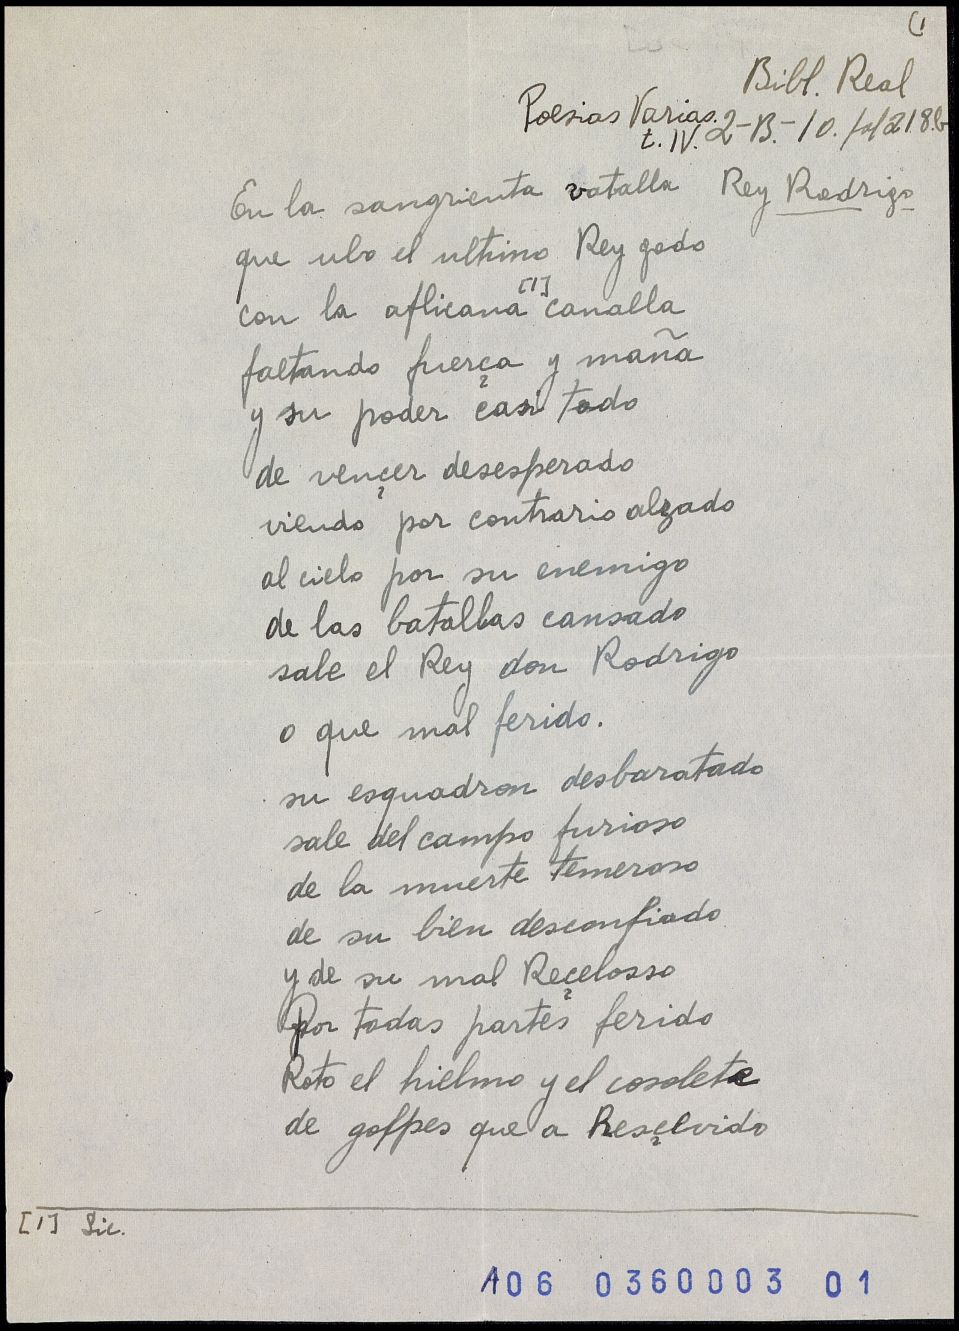 (1
Bibl. Real
Poesias Varias. 2-B.-10. fol 218b
t. IV.
En la sangrienta vatalla Rey Rodrigo
que ubo el ultimo Rey godo
con la aflicana [1] canalla
faltando fuerça y maña
y su poder casi todo
de vençer desesperado
viendo por contrario alzado
al cielo por su enemigo
de las batallas cansado
sale el Rey don Rodrigo
o que mal ferido.
su esquadron desbaratado
sale del campo furioso
de la muerte temeroso
de su bien desconfiado
y de su mal Reçelosso
Por todas partes ferido
Roto el hielmo y el cosolete
de golpes que a Resçevido
[1] Sic.
A06 0360003 01